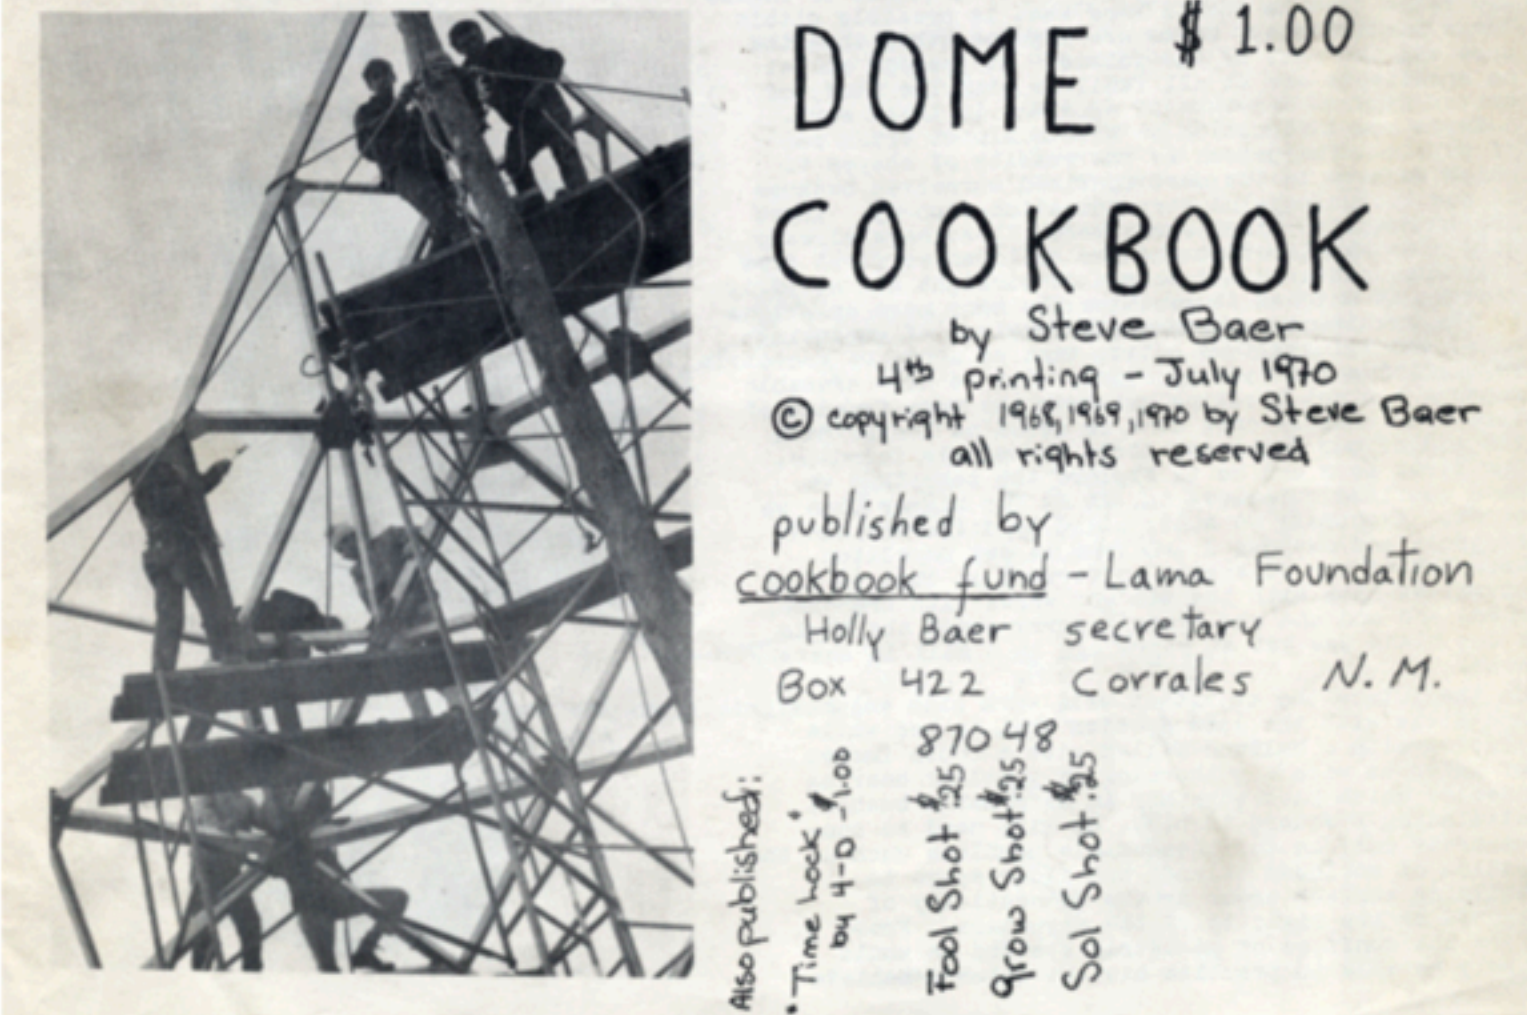 $ 1.00
DOME
COOKBOOK
by Steve Baer
4th printing - July 1970
© copyright 1968, 1969, 1970 by Steve Baer
all rights reserved
published by
cookbook fund - Lama Foundation
Holly Baer secretary
Box 422 Corrales N. M.
87048
Also published:
"Time lock"
by 4-D - $1.00
Fool Shot $.25
Grow Shot $.25
Sol Shot $.25